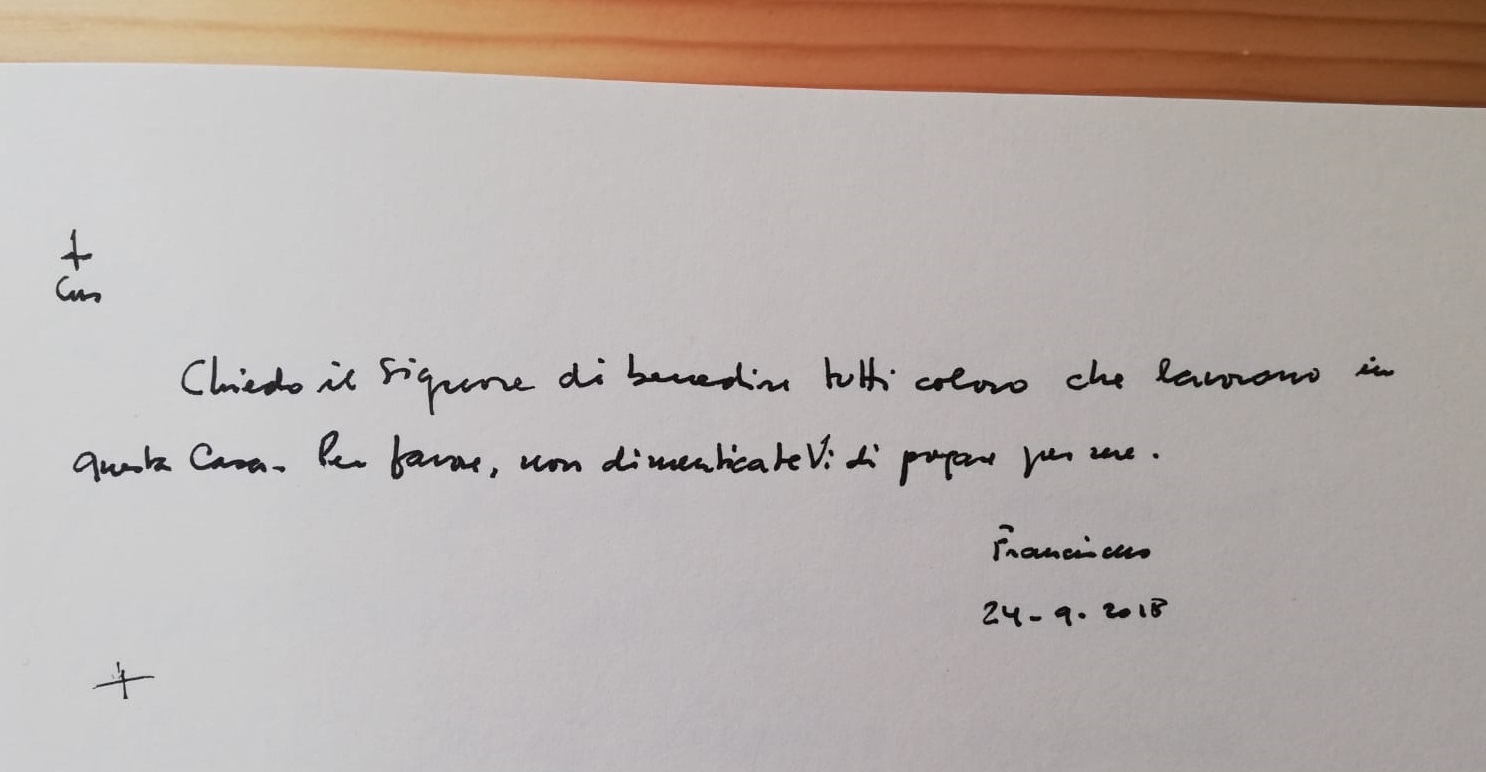 Chiedo il Signore di benedire tutti coloro che lavorano in
questa Casa. Per favore, non dimenticateVi di pregare per me.
Franciscus
24-9.2018